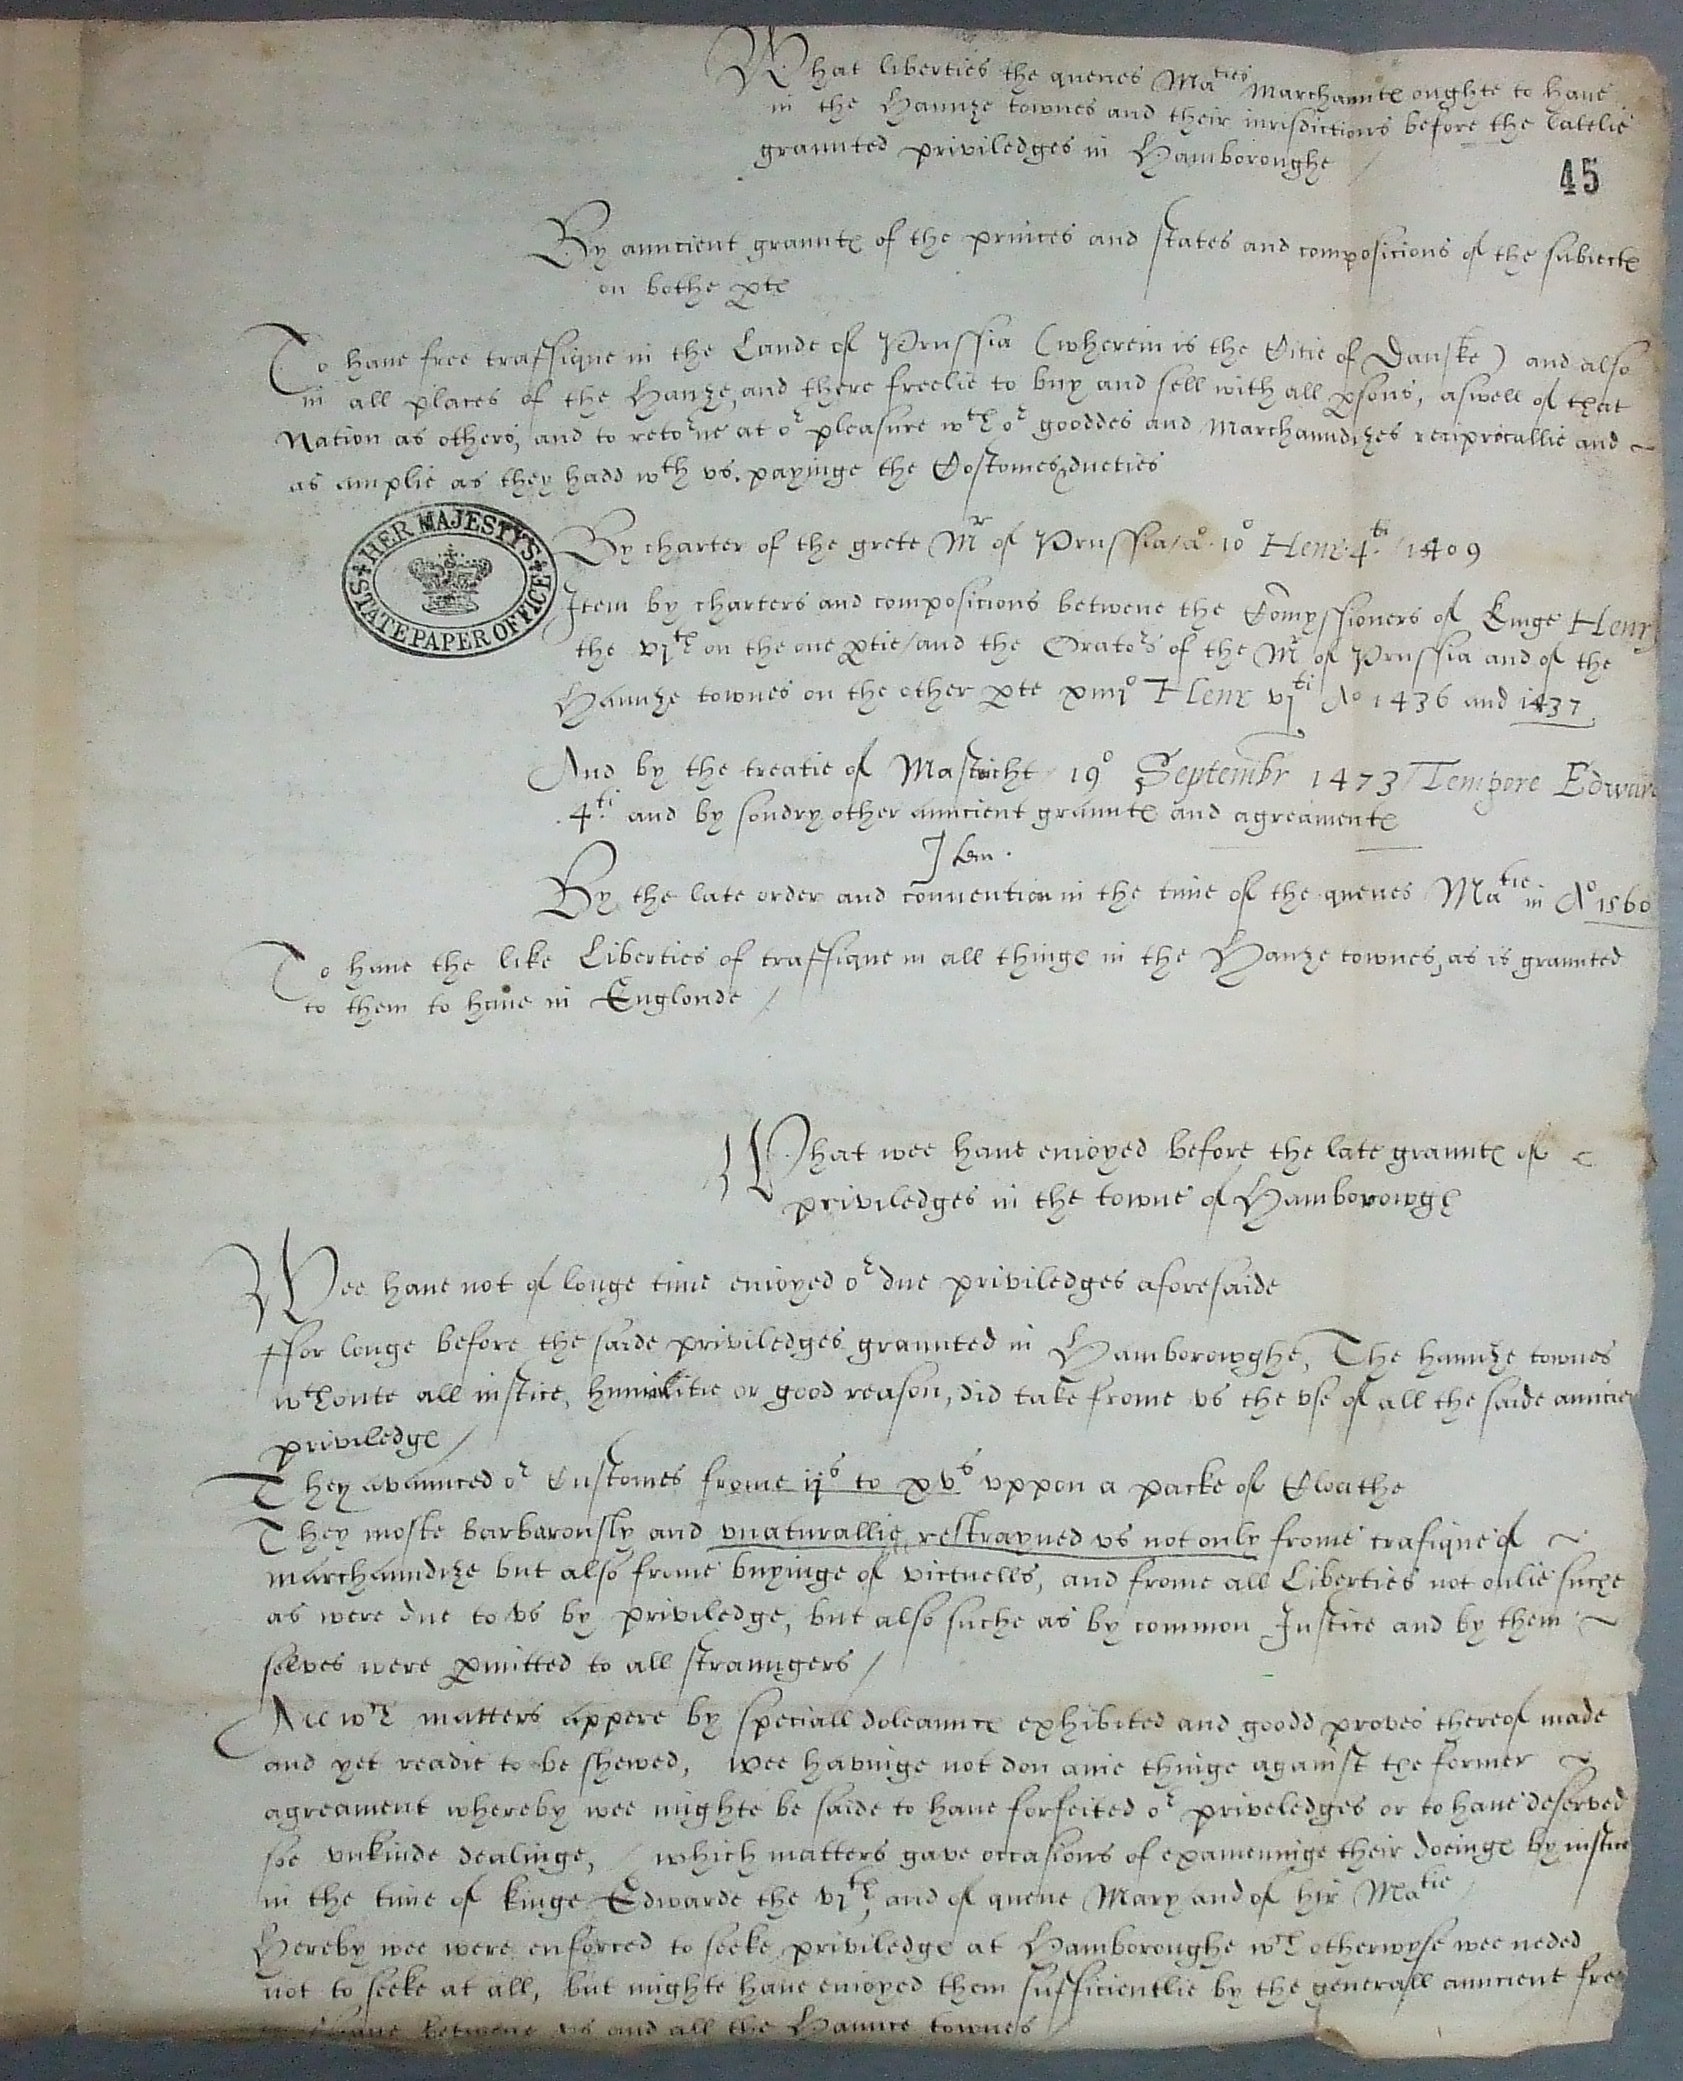 What liberties the quenes Ma^ties Marchauntes oughte to haue
in the Haunze townes and their iurisdictions before the latelie
graunted priviledges in Hamboroughe /
45
By auncient grauntes of the princes and states and composicions of the subiectes
on bothe ptes
To haue free traffique in the Lande of Prussia (wherein is the Citie of Danske) and also
in all places of the Hanze, and there freelie to buy and sell with all psons, aswell of that
Nation as others, and to reto^rne at o^r pleasure w^th o^r gooddes and Marchaundizes reciprocallie and ~
as amplie as they hadd w^th vs. payinge the Costomes & dueties
HER MAJESTY'S STATE PAPER OFFICE
By charter of the grete M^r of Prussia / a^o. 10^o Henr. 4^ti. / 1409
Item by charters and composicions betwene the Comyssioners of Kinge Henry
the vj^th on the one ptie / and the Orato^rs of the M^r of Prussia and of the
Haunze townes on the other pte xiiij^o Henr vj^ti A^o 1436 and 1437
And by the treatie of Mastricht 19^o Septembr 1473 / Tempore Edward
4^ti. and by sondry other auncient grauntes and agreamentes
Item.
By the late order and conuention in the time of the quenes Ma^tie in A^o 1560
To haue the like Liberties of traffique in all thinges in the Hanze townes, as is graunted
to them to haue in Englonde /
What wee haue enioyed before the late grauntes of
priviledges in the towne of Hamborowgh
Wee haue not of longe time enioyed o^r due priviledges aforesaide
ffor longe before the saide priviledges graunted in Hamborowghe, The haunze townes
w^thoute all iustice, humilitie or good reason, did take frome vs the vse of all the saide auncien
priviledges /
They avaunced o^r Customes frome ij^s to xv^s vppon a packe of Cloathe
They moste barbarously and vnaturallie restrayned vs not only frome trafique of ~
marchaundize but also frome buyinge of victuells, and frome all Liberties not onlie suche
as were due to vs by priviledge, but also suche as by common Justice and by them ~
selves were pmitted to all straungers /
All w^ch matters appere by speciall doleaunces exhibited and goodd proves thereof made
and yet readie to be shewed, wee havinge not don anie thinge against the former ~
agreament whereby wee mighte be saide to haue forfeited o^r priveledges or to haue deserved
soe vnkinde dealinge, / which matters gave occasions of exameninge their doeinges by iustice
in the time of kinge Edwarde the vj^th, and of quene Mary and of hir Ma^tie /
Hereby wee were enforced to seeke priviledges at Hamboroughe w^ch otherwyse wee neded
not to seeke at all, but mighte haue enioyed them sufficientlie by the generall auncient free
betwene vs and all the Haunce townes /